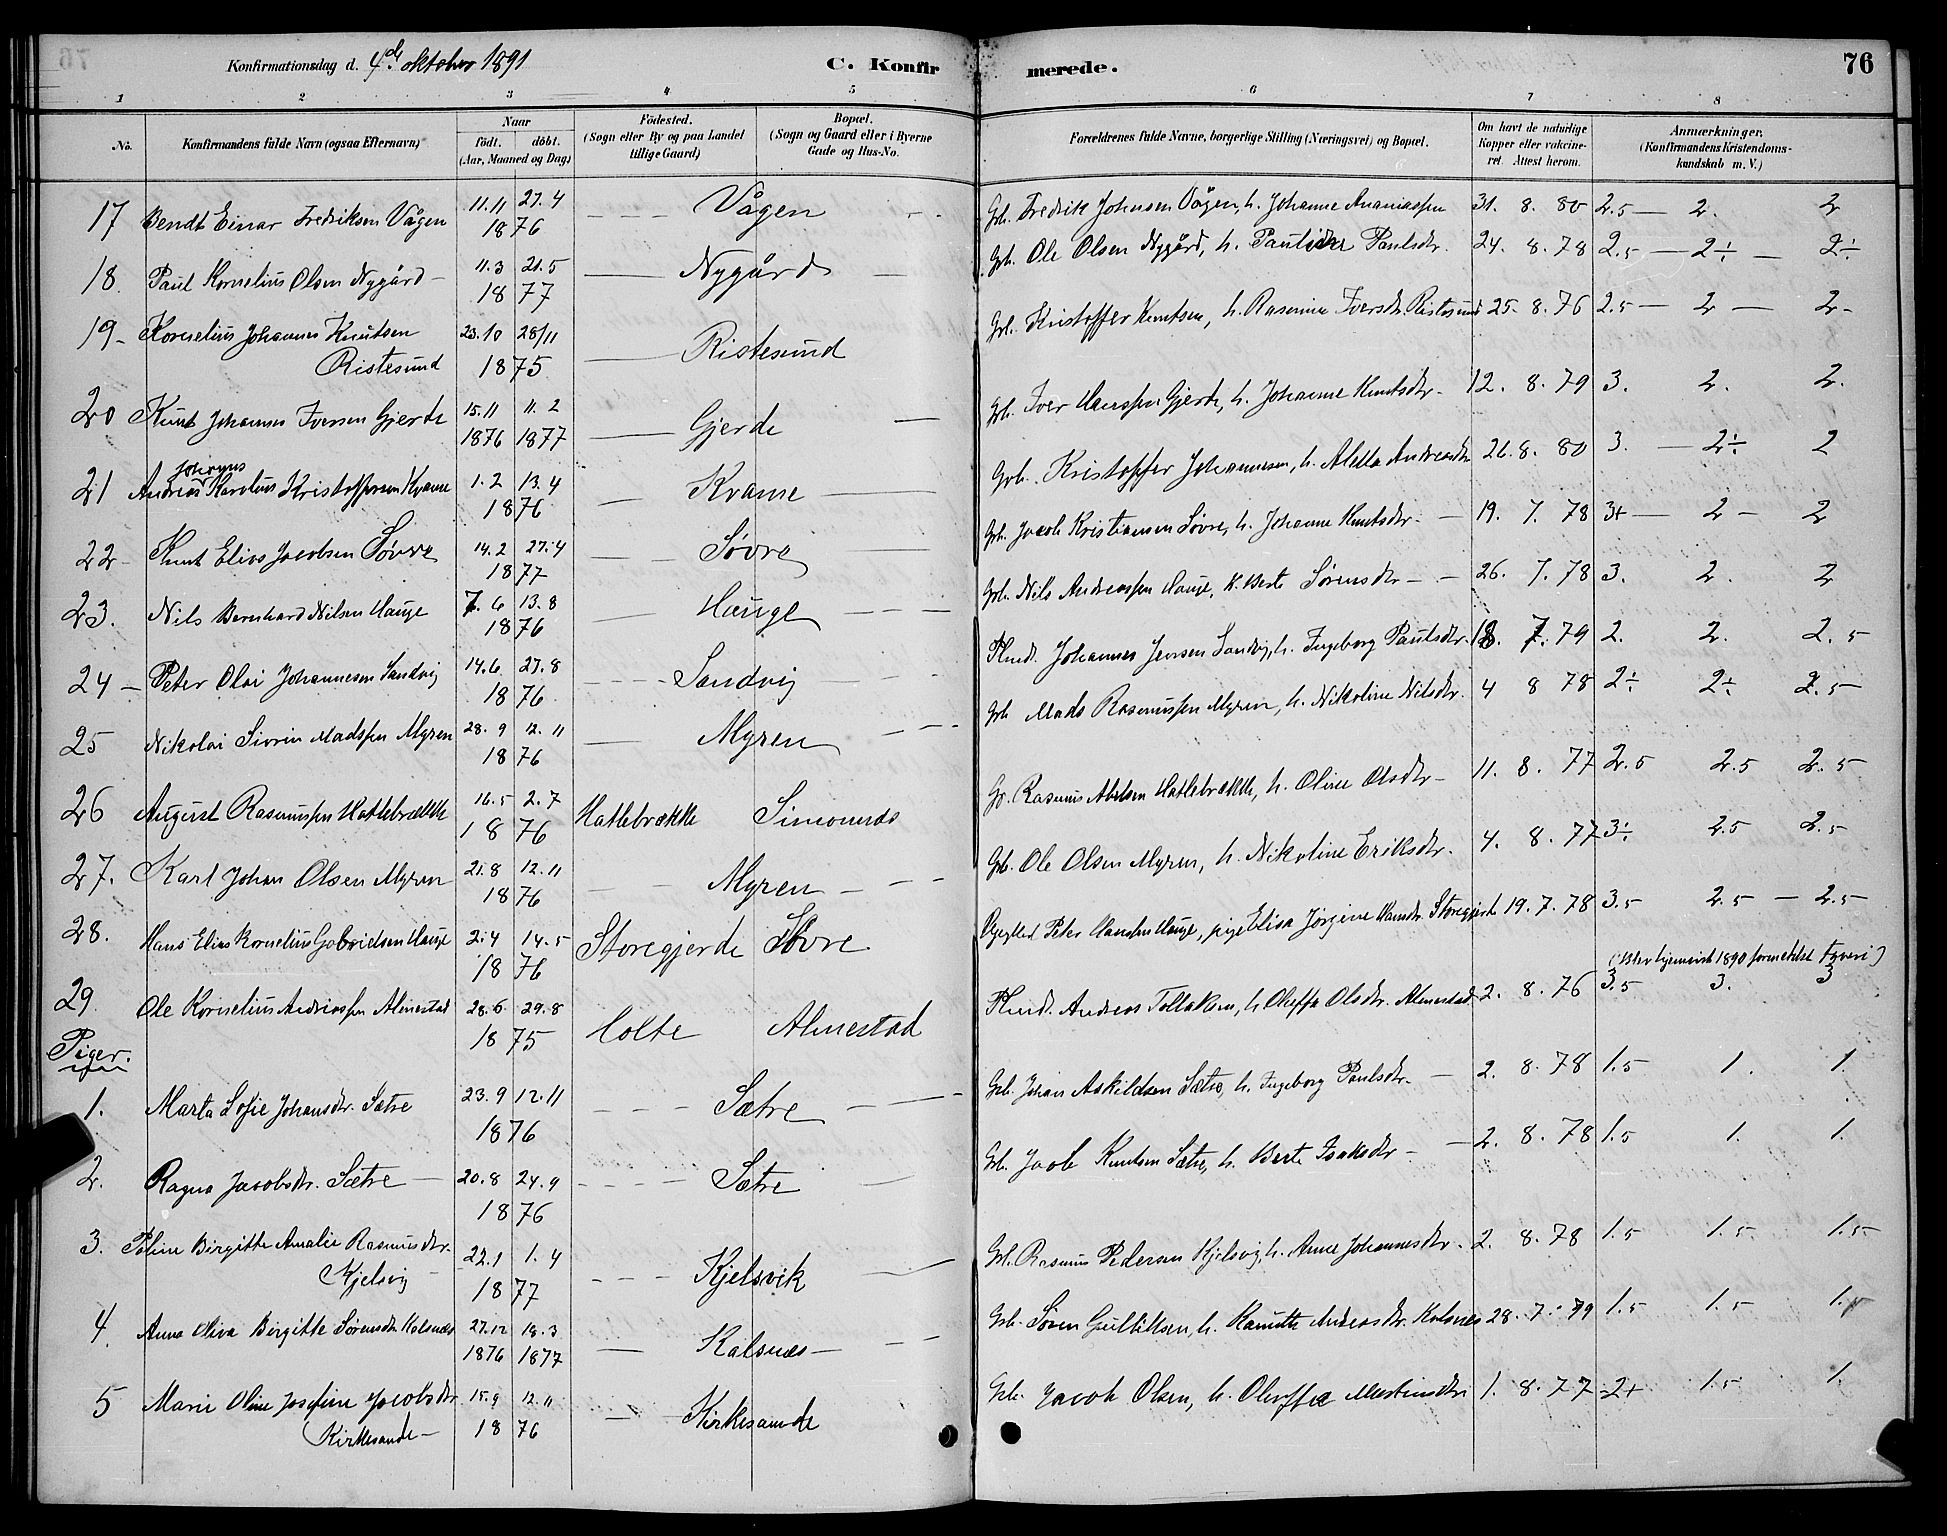 76
Konfirmationsdag d. 4de oktober 1891
C. Konfirmerede.
1 2 3 4 5 6 7 8
No. Konfirmandens fulde Navn (ogsaa Efternavn) Naar født. døbt. (Aar, Maaned og Dag) Fødested. (Sogn eller By og paa Landet tillige Gaard) Bopæl. (Sogn og Gaard eller i Byerne Gade og Hus-No. Forældrenes fulde Navne, borgerlige Stilling (Næringsvei) og Bopæl. Om havt de naturlige Kopper eller vakcineret. Attest herom. Anmærkninger. (Konfirmandens Kristendomskundskab m. V.)
17 Bendt Einar Fredriksen Vågen 11.11 27.4 1876 Vågen Gb. Fredrik Johnsen Vågen, h. Johanne Ananiasptr 31. 8. 80 2.5 — 2. 2
18 Paul Kornelius Olsen Nygård 11.3 21.5 1877 Nygård Gb. Ole Olsen Nygård, h. Paulsdtr. 24. 8. 78 2.5 — 2÷ — 2÷
19 Kornelius Johannes Knutsen Ristesund 23.10 28/11 1875 Ristesund Gb. Kristoffer Knutsen, h. Rasmine Iversdtr. Ristesund 25. 8. 76 2.5 — 2 — 2
20 Knut Johannes Iversen Gjerde 15.11 11.2 1876 1877 Gjerde Gb. Iver Hanssen Gjerde, h. Johanne Knutsdtr. 12. 8. 79 3. 2. 2.
21 Andreas Johannes Karelius Kristoffersen Kvame 1.2 13.4 1876 Kvame Gb. Kristoffer Johannesen, h. Aletta Andreasdtr 26. 8. 80 3. — 2÷ 2
22 Knut Elias Jacobsen Søvre 14.2 27.4 1877 Søvre Gb. Jacob Kristiansen Søvre, h. Johanne Knutsdtr. 19. 7. 78 3+ — 2 — 2
23. Nils Bernhard Nilsen Hauge 7.6 13.8 1876 Hauge Gb. Nils Andreassen Hauge, h. Berte Sørensdtr 26. 7. 78 3. 2. 2
24 Peter Olai Johannesen Sandvig 14.6 27.8 1876 Sandvig Hmd. Johannes Jensen Sandvig, h. Ingeborg Paulsdtr. 18. 7. 79 2. 2. 2.5
25 Nikolai Sivrin Madssen Myren 28.9 12.11 1876 Myren Gb Mads Rasmussen Myren, h. Nikoline Nilsdtr. 4 8 78 2÷ 2÷ 2.5
26 August Rasmussen Hatlebrække 16.5 2.7 1876 Hatlebrække Simonnæs Gb. Rasmus Abelsen Hatlebrække, h. Oline Olsdtr 11. 8. 77 2.5 2.5 2.5
27. Karl Johan Olsen Myren 21.8 12.11 1876 Myren Gb. Ole Olsen Myren, h. Nikoline Eriksdtr. 4. 8. 77 3÷ 2.5 2.5
28. Hans Elias Kornelius Gabrielsen Hauge 2.4 14.5 1876 Storegjerde Søvre Peter Hansen Hauge, pige Elisa Jørgine Hansdtr. Storegjerde 19. 7. 78 3.5 2.5 — 2.5
(Blev hjemvist 1890 formedelst tyveri)
29. Ole Kornelius Andreassen Almestad 28.6 29.8 1875 Holte Almestad Hmd. Andreas Tollaksen, h. Oleffa Olsdtr. Almestad 2. 8. 76 3.5 3. 3
Piger.
1. Marta Sofie Johansdtr. Sætre 23.9 12.11 1876 Sætre Gb. Johan Askildsen Sætre, h. Ingeborg Paulsdtr. 2. 8. 78 1.5 1. 1.
2. Ragna Jacobsdtr. Sætre 20.8 24.9 1876 Sætre Gb. Jacob Knutsen Sætre, h. Berte Isaksdtr 2. 8. 78 1.5 1. 1.
3. Poline Birgitte Amalie Rasmusdtr. Kjelsvig 22.1 1.4 1877 Kjelsvik Gb. Rasmus Pedersen Kjelsvig, h. Anne Johannesdtr. 2. 8. 78 1.5 1.5 1.5
4. Anna Oliva Birgitte Sørensdtr Kalsnæs 27.12 18.3 1876 1877 Kalsnæs Gb. Søren Gulliksen, h. Andreasdtr. Kalsnæs 28. 7. 79 1.5 1.5 1.
5 Marie Oline Josefine Jacobsdtr Kirkesande 15.9 12.11 1876 Kirkesande Gb. Jacob Olsen, h. Oleffa Martinsdtr 1. 8. 77 2+ 1.5 1.